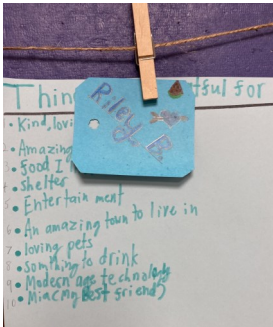 Thin
tful for
Riley B.
• Kind, lovi
2 • Amazing
3 • food I
4 • Shelter
5 • Entertain ment
6 • An amazing town to live in
7 • loving pets
8 • Somthing to drink
9 • Modern age technology
10 • best friend)